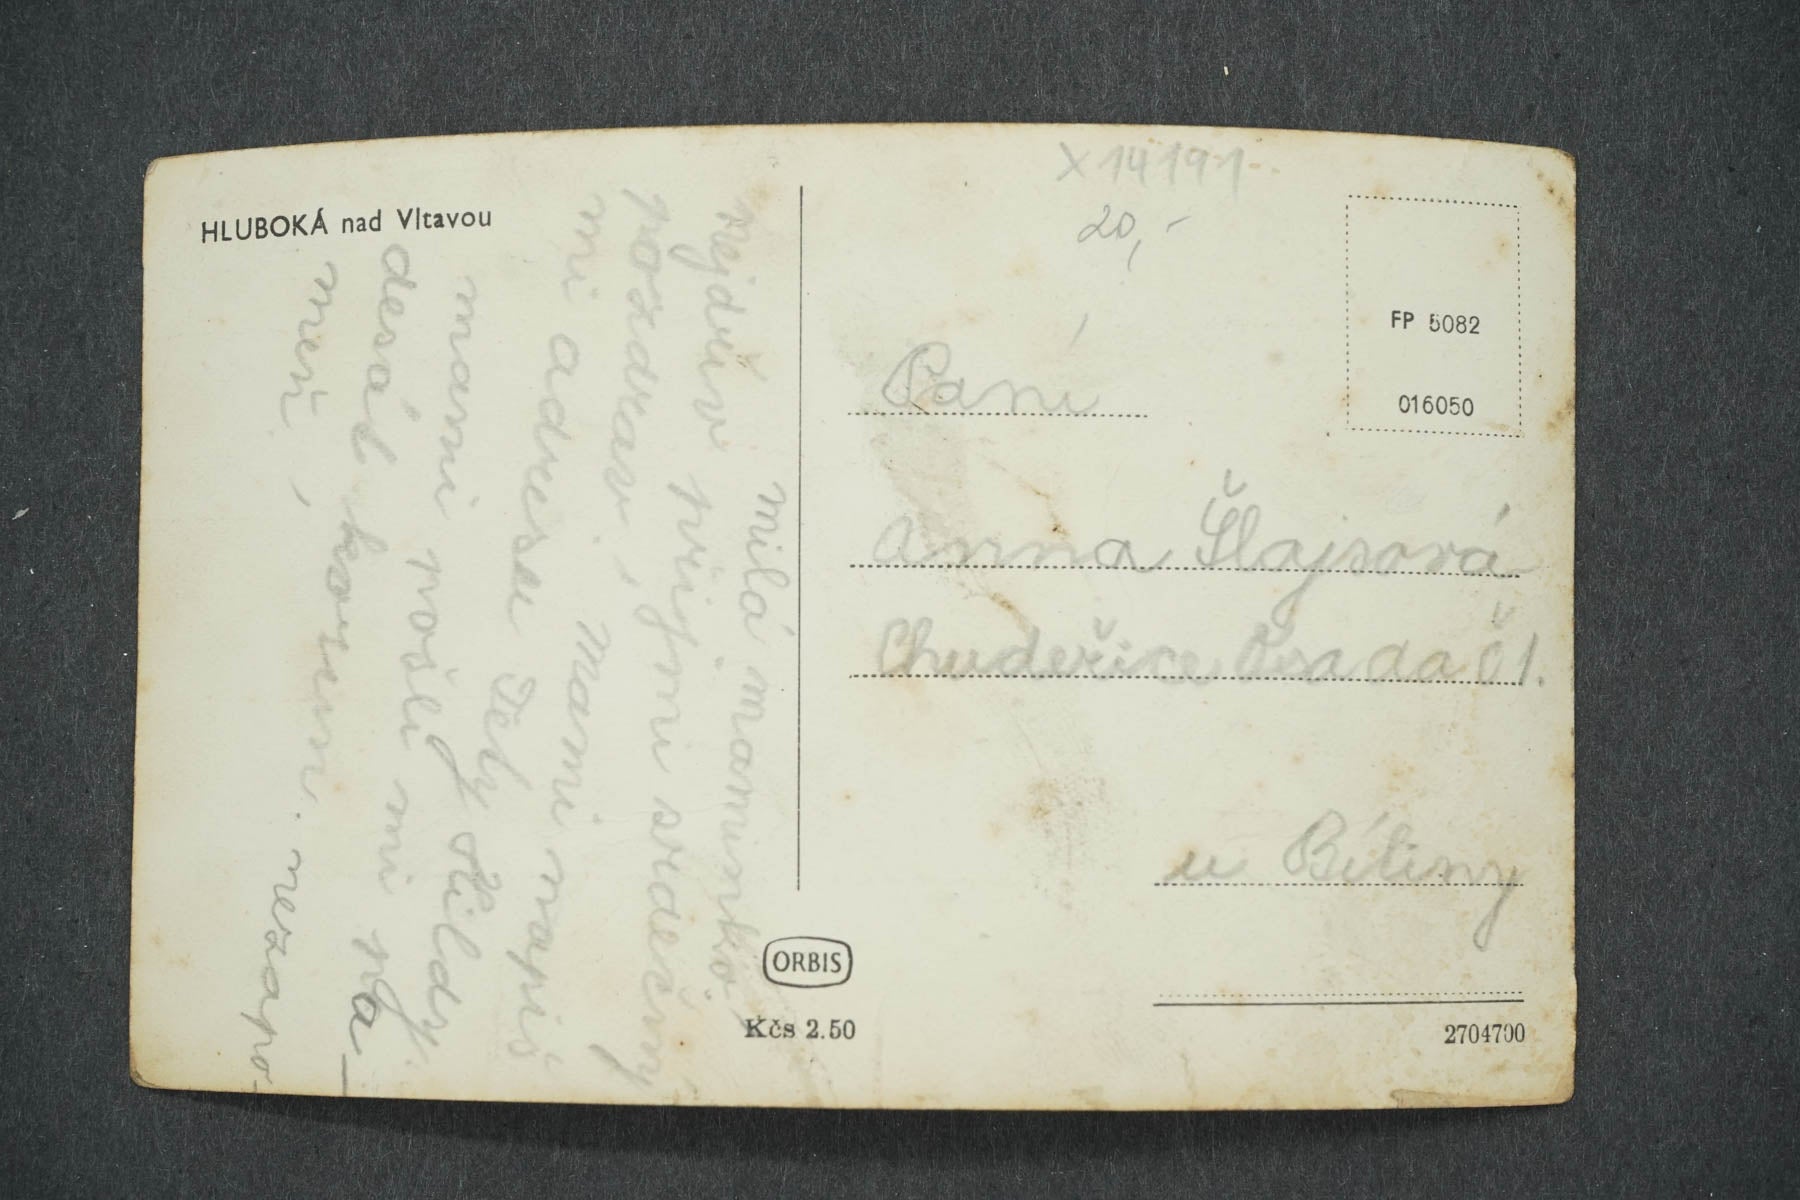 HLUBOKÁ nad Vltavou
milá maminko,
nejdřív přijmi srdečný
pozdrav, mami napiš
mi adresu Tety Hildy.
mami pošli mi pa
desát korun. nezapo-
meň,
X 14191
20,-
Paní
Anna Šlajsová
Chudeřice Osada Č1.
u Bíliny
FP 5082
016050
ORBIS
Kčs 2.50
2704700